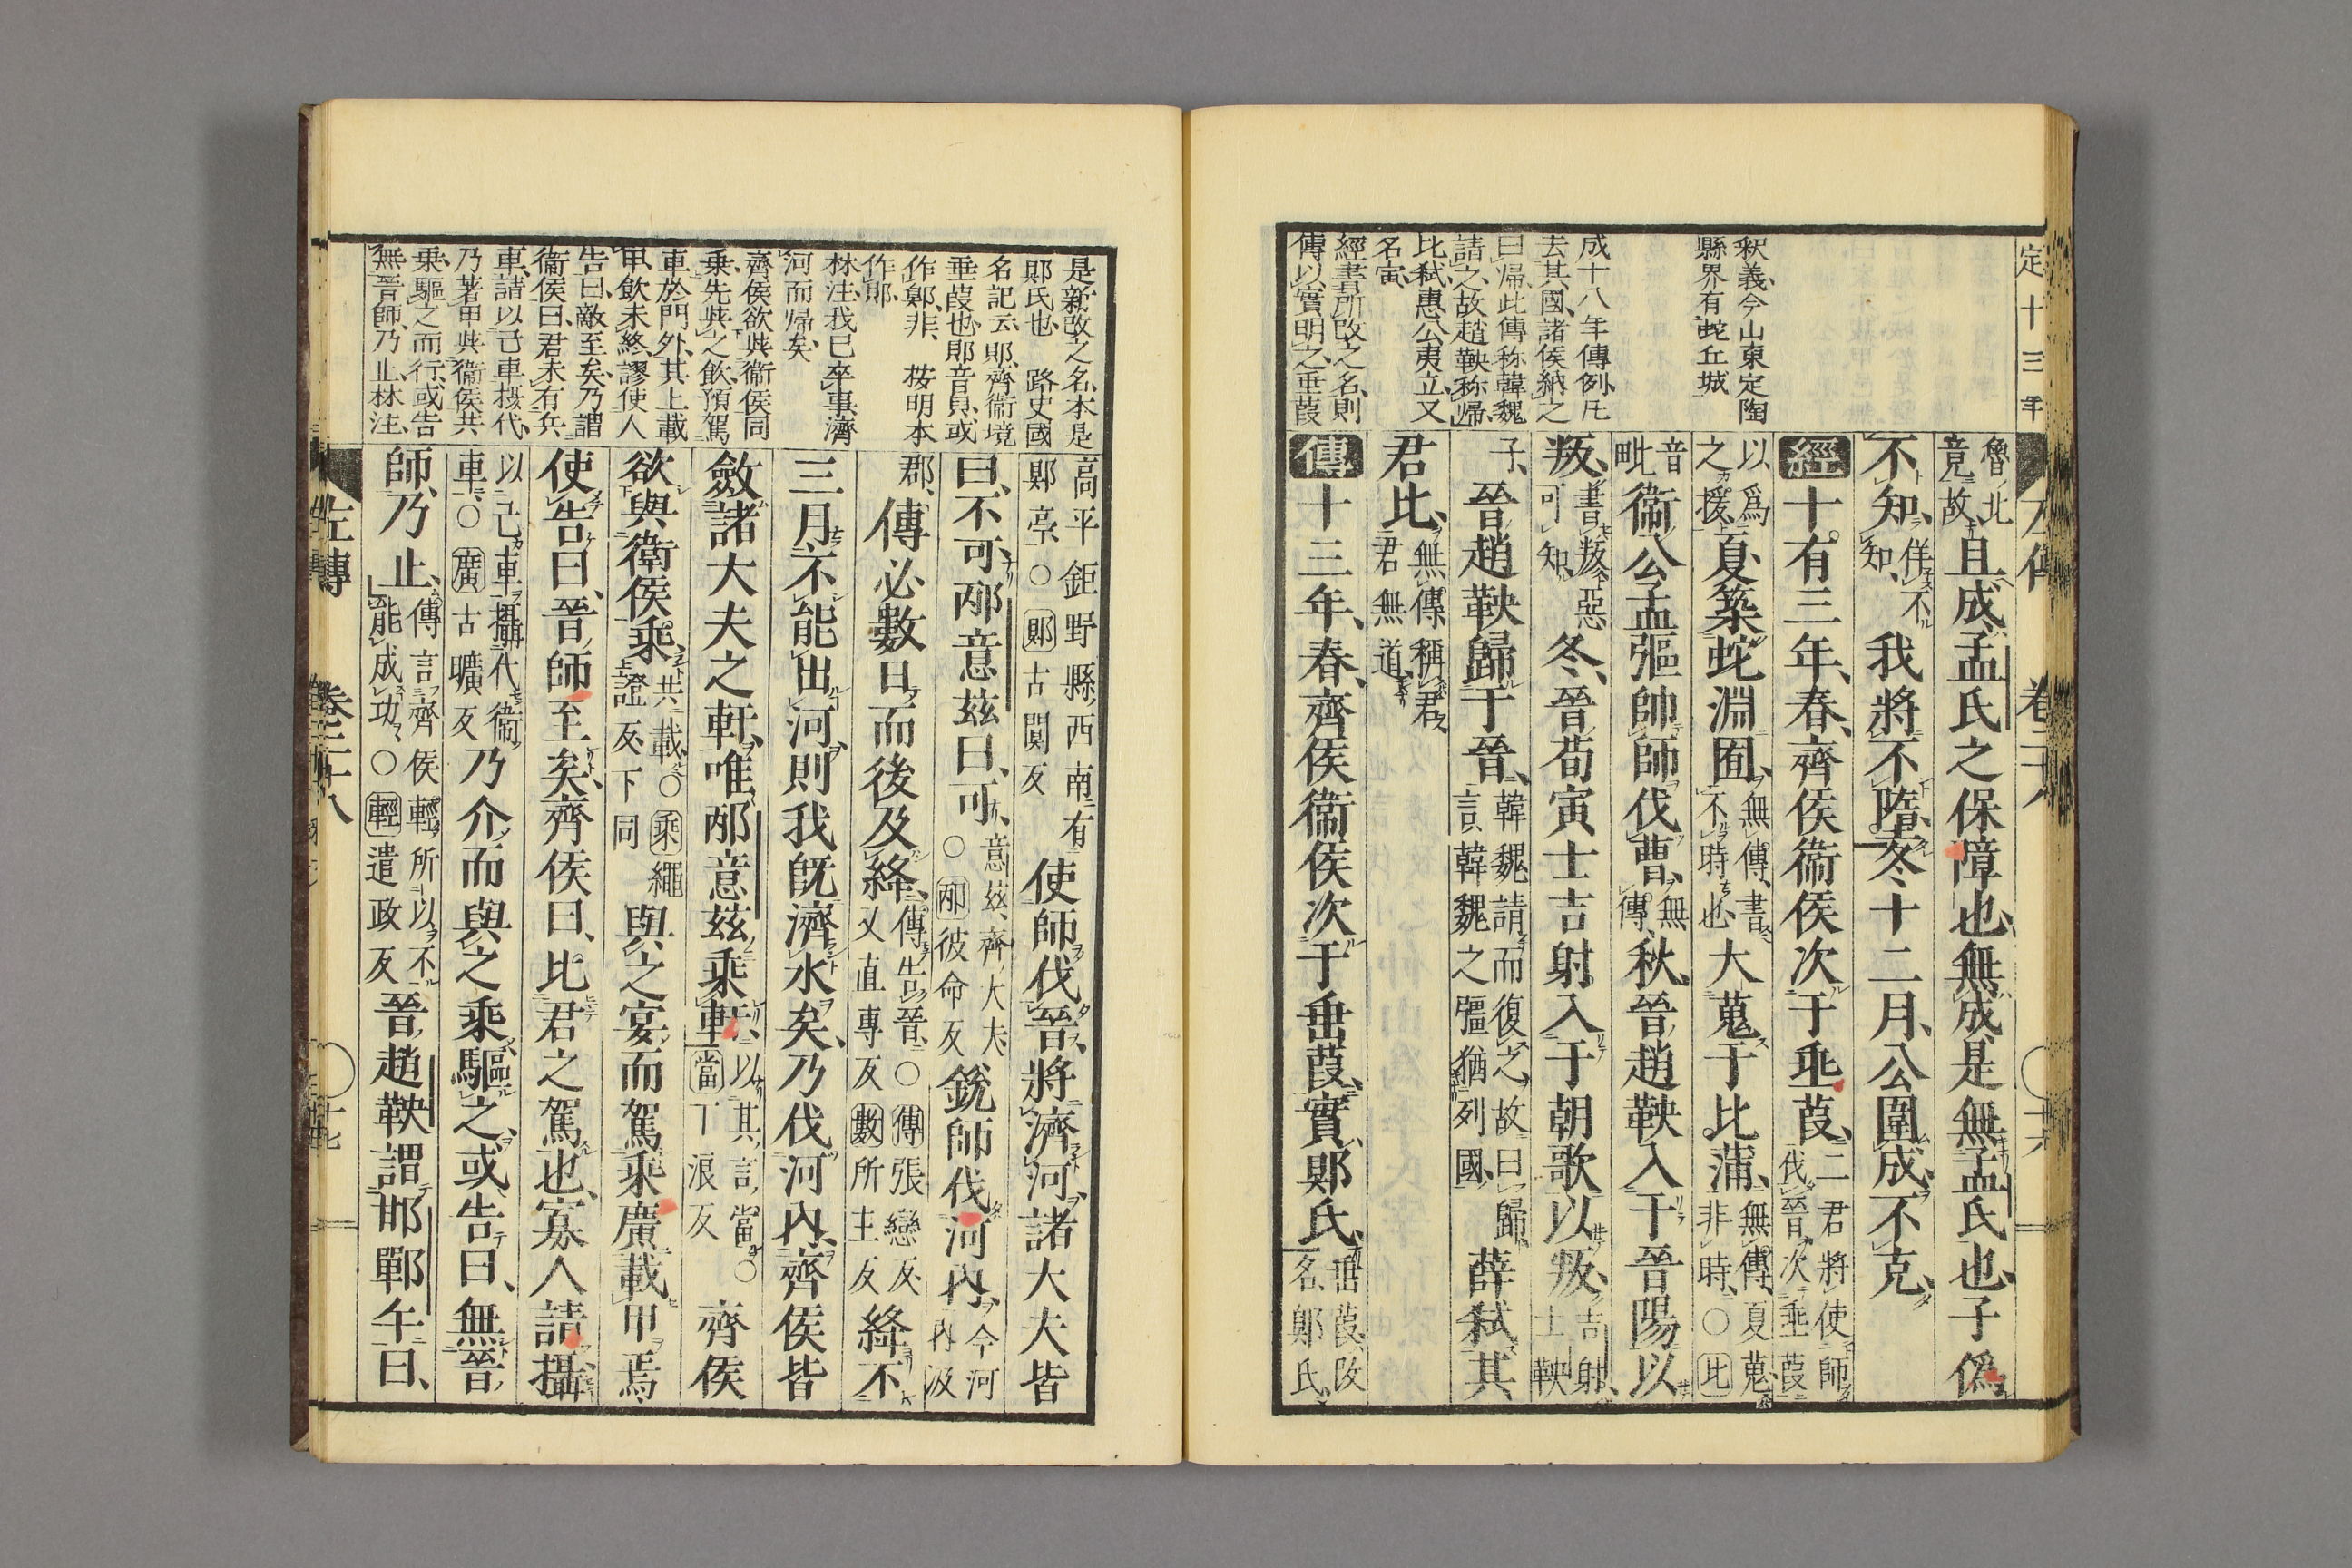 定十三年
釈義今山東定陶
縣界有蛇丘城
成十八年傳例凡
去其國諸侯納之
曰帰此傳称韓魏
請之故趙鞅称帰
比弑惠公夷立又
名寅
經書所改之名則
傳以實明之垂葭
左傳 卷二十八 十六
魯北竟故且成孟氏之保障也無成是無孟氏也子僞
不知佯不知我將不墮冬十二月公圍成不克
經十有三年春齊侯衞侯次于垂葭二君將使師伐晉次垂葭
以爲之援夏築蛇淵囿無傳書不時也大蒐于比蒲無傳夏蒐非時○比
音毗衞公孟彄帥師伐曹無傳秋晉趙鞅入于晉陽以
叛書叛惡可知冬晉荀寅士吉射入于朝歌以叛吉射士鞅
子晉趙鞅歸于晉韓魏請而復之故曰歸言韓魏之彊猶列國薛弑其
君比無傳稱君君無道
傳十三年春齊侯衞侯次于垂葭實郹氏垂葭改名郹氏
是新改之名本是
郹氏也 路史國
名記云郹齊衞境
垂葭也郹音具或
作鄓非 桉明本
作郹
林注我已卒事濟
河而帰矣
齊侯欲与衞侯同
乗先與之飲預駕
車於門外其上載
甲飲未終謬使人
告曰敵至矣乃謂
衞侯曰君未有兵
車請以己車摂代
乃著甲與衞侯共
乗驅之而行或告
無晉師乃止林注
高平鉅野縣西南有郹亭○郹古闃反使師伐晉將濟河諸大夫皆
曰不可邴意茲曰可意茲齊大夫○邴彼命反銳師伐河內今河內汲
郡傳必數日而後及絳傳告晉○傳張戀反又直專反數所主反絳不
三月不能出河則我旣濟水矣乃伐河內齊侯皆
斂諸大夫之軒唯邴意茲乘軒以其言當○當丁浪反齊侯
欲與衞侯乘共載○乘繩證反下同與之宴而駕乘廣載甲焉
使告曰晉師至矣齊侯曰比君之駕也寡人請攝
以己車攝代衞車○廣古曠反乃介而與之乘驅之或告曰無晉
師乃止傳言齊侯輕所以不能成功○輕遣政反晉趙鞅謂邯鄲午曰
左傳 卷二十八 十七